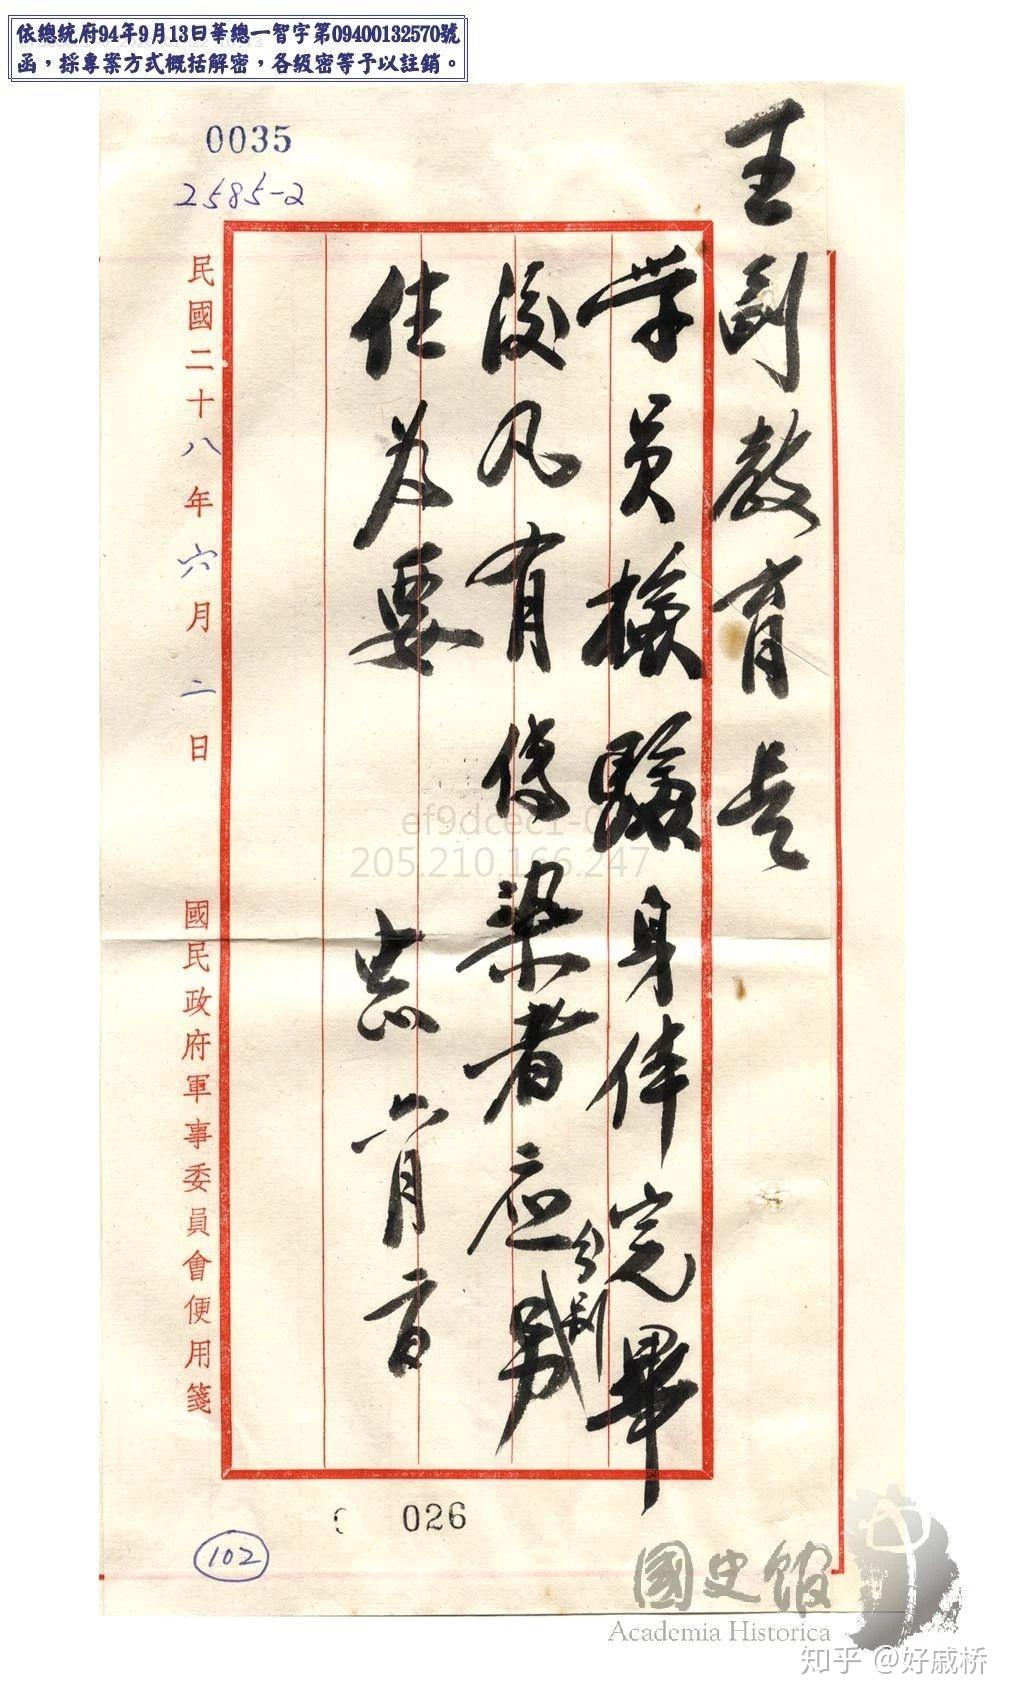 依總統府94年9月13日華總一智字第09400132570號
函，採專案方式概括解密，各級密等予以註銷。
0035
2585-2
王副教育長
学員檢驗身体完畢
後凡有傳染者应分别另
住為要
志 六月二日
民國二十八年六月二日
國民政府軍事委員會便用箋
ef9dcec1-0
205.210.166.247
026
102
國史館
Academia Historica
知乎 @好戚桥